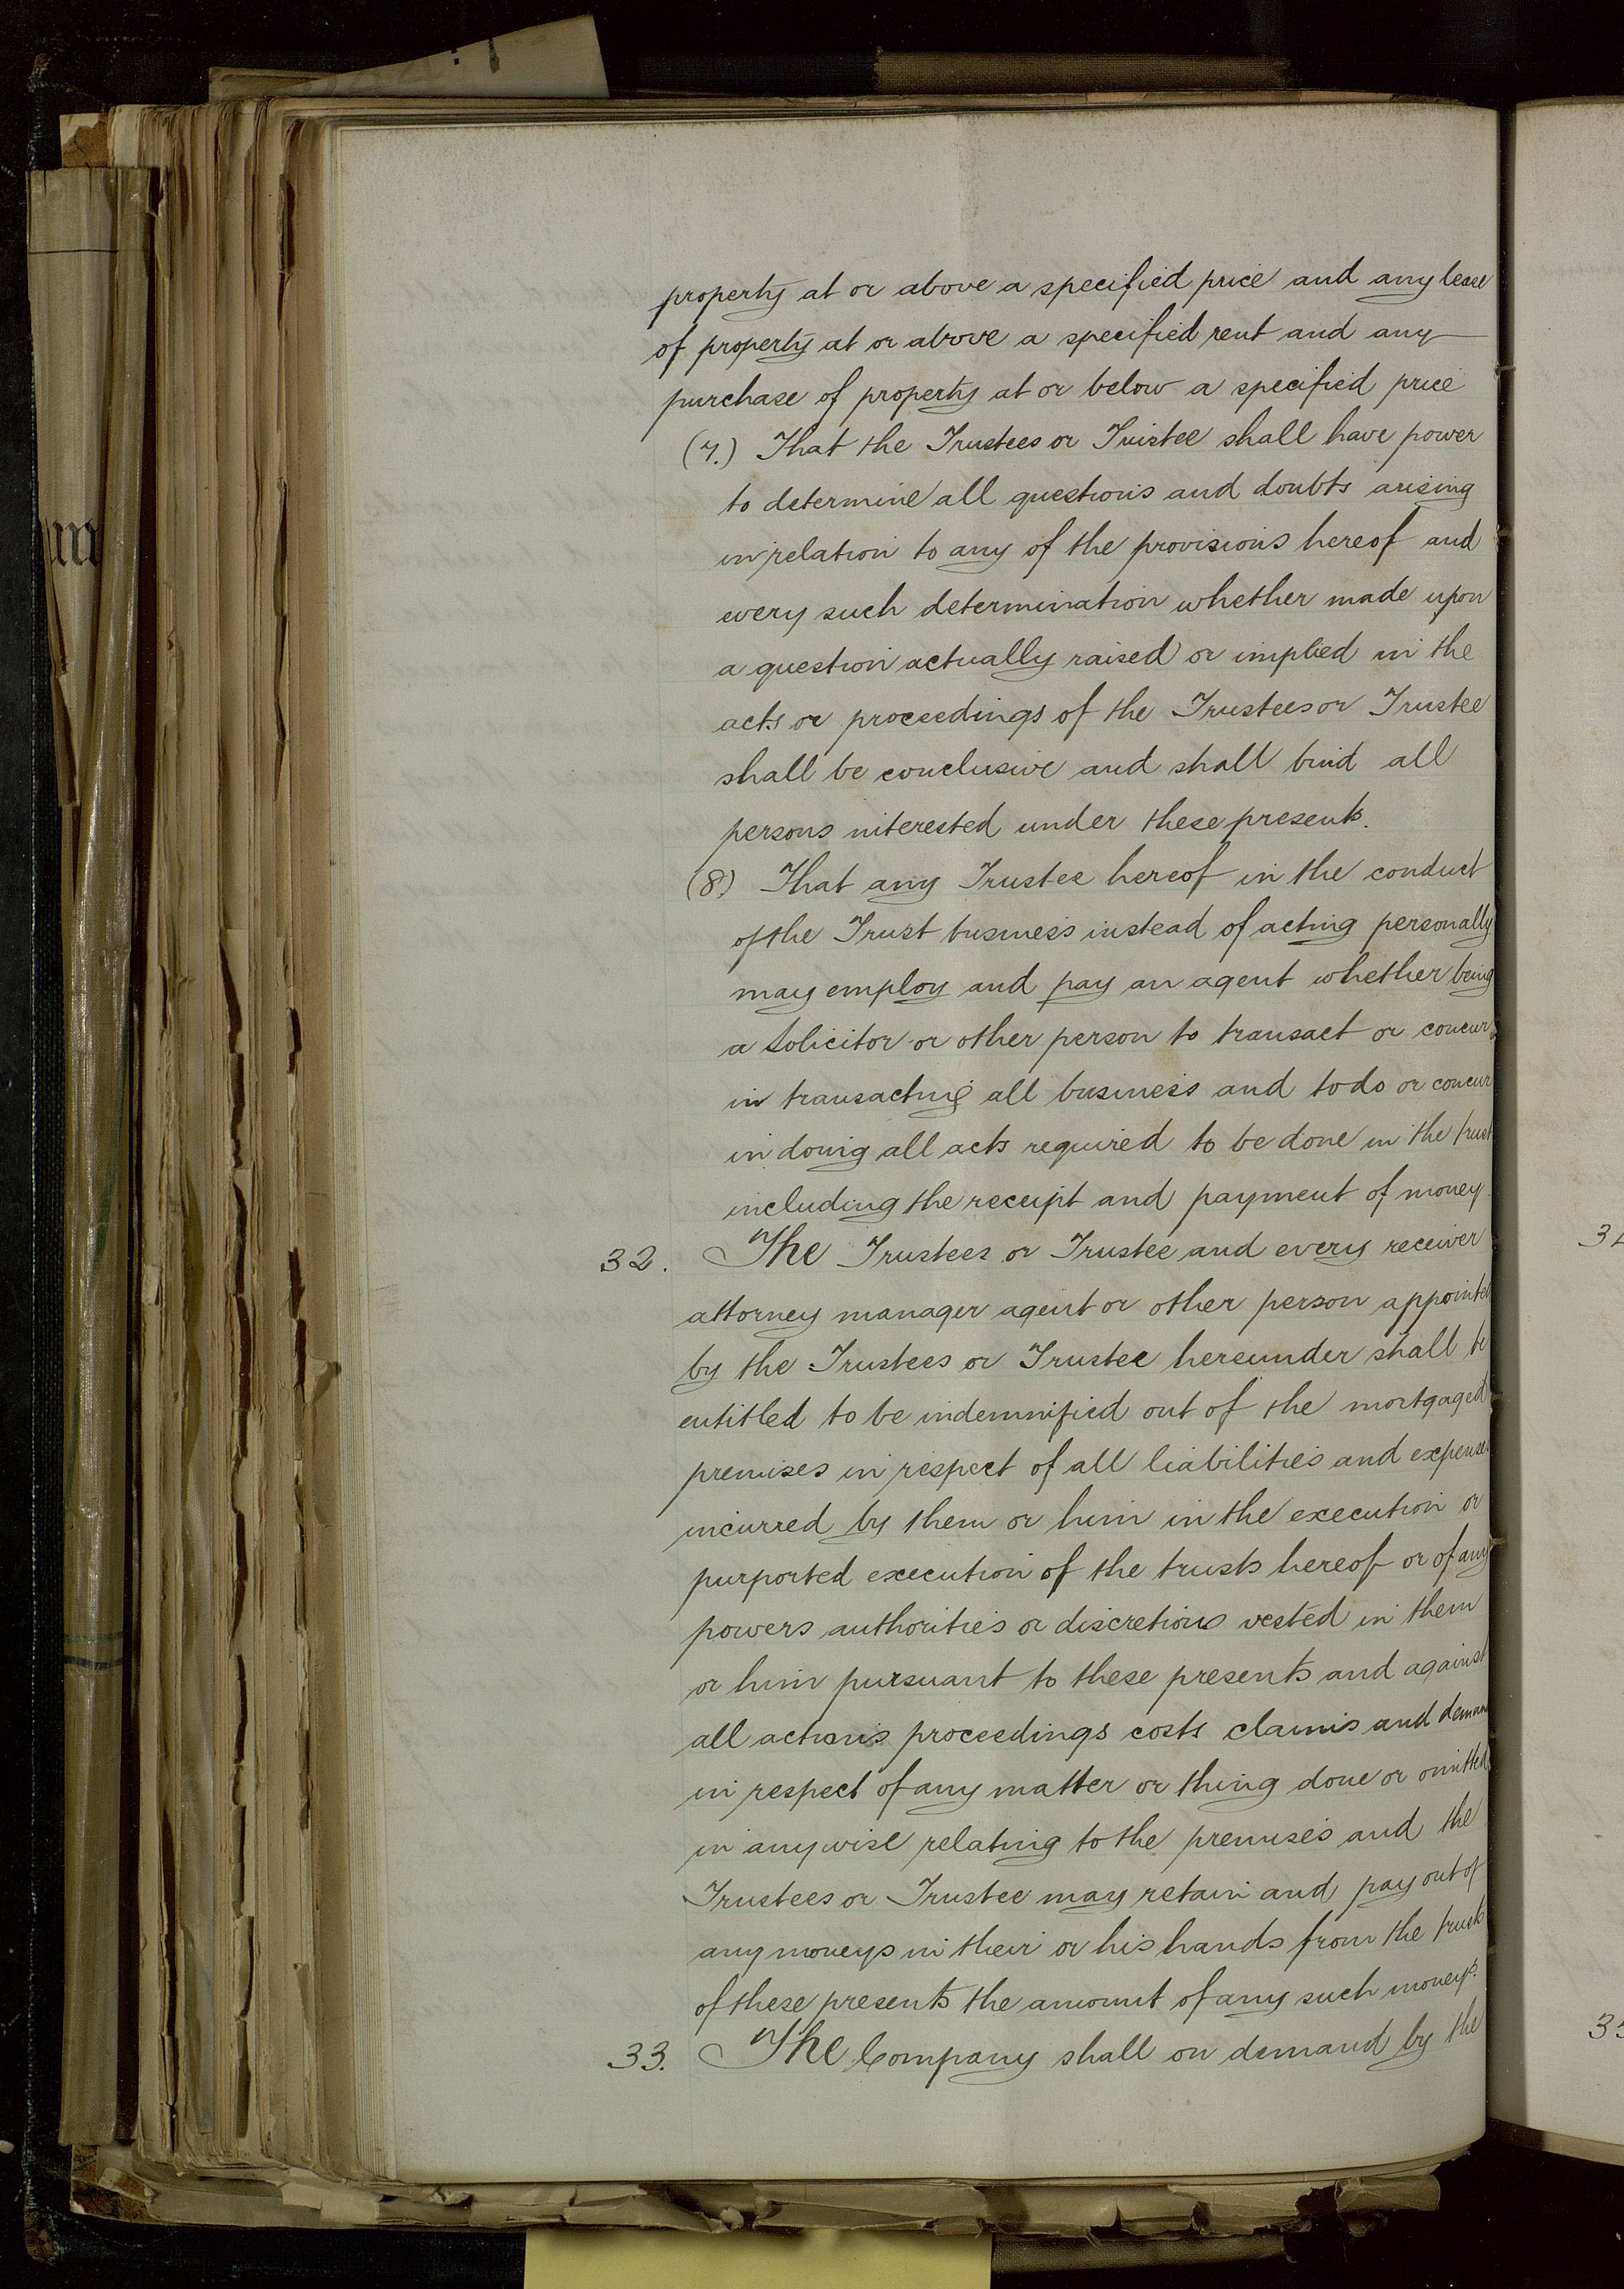 property at or above a specified price and any lease
of property at or above a specified rent and any
purchase of property at or below a specified price
(7.) That the Trustees or Trustee shall have power
to determine all questions and doubts arising
in relation to any of the provisions hereof and
every such determination whether made upon
a question actually raised or implied in the
acts or proceedings of the Trustees or Trustee
shall be conclusive and shall bind all
persons interested under these presents.
(8) That any Trustee hereof in the conduct
of the Trust business instead of acting personally
may employ and pay an agent whether being
a Solicitor or other person to transact or concur
in transacting all business and to do or concur
in doing all acts required to be done in the trust
including the receipt and payment of money.
32. The Trustees or Trustee and every receiver
attorney manager agent or other person appointed
by the Trustees or Trustee hereunder shall be
entitled to be indemnified out of the mortgaged
premises in respect of all liabilities and expenses
incurred by them or him in the execution or
purported execution of the trusts hereof or of any
powers authorities or discretions vested in them
or him pursuant to these presents and against
all actions proceedings costs claims and deman
in respect of any matter or thing done or omitted
in anywise relating to the premises and the
Trustees or Trustee may retain and pay out of
any moneys in their or his hands from the trusts
of these presents the amount of any such moneys.
33. The Company shall on demand by the